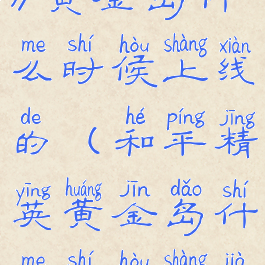 》黄金岛什
me shí hòu shàng xiàn
么时候上线
de hé píng jīng
的（和平精
yīng huáng jīn dǎo shí
英黄金岛什
me shí hòu shàng jià